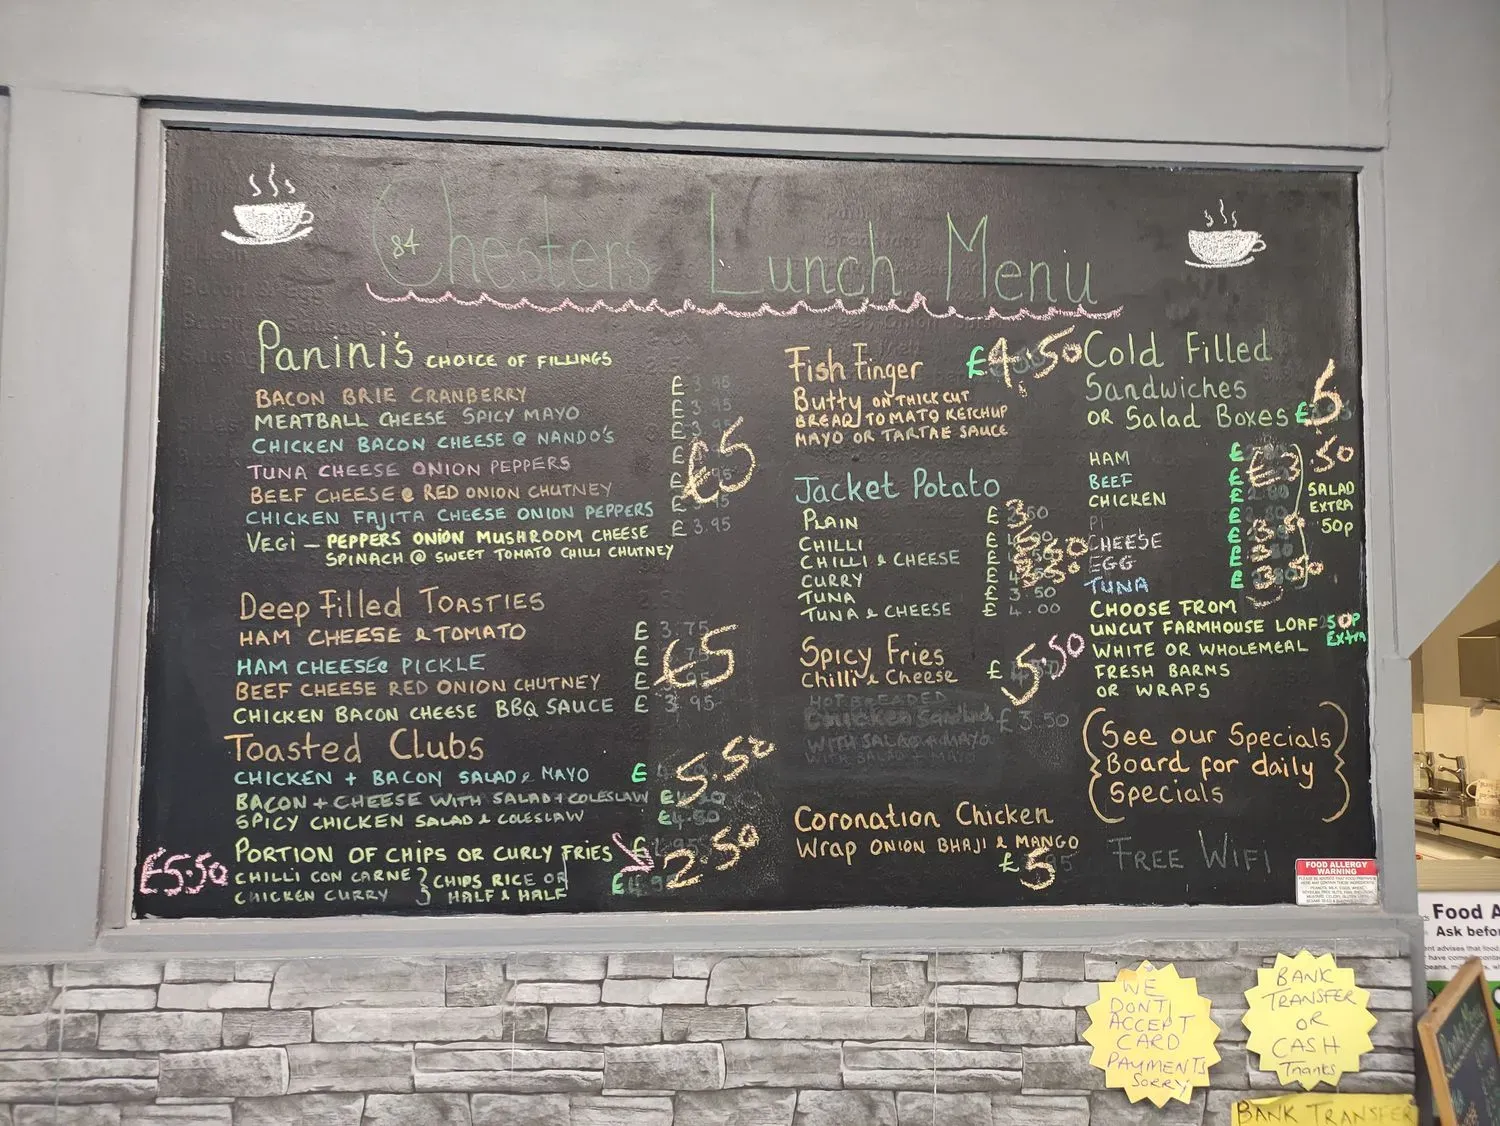 84 Chesters Lunch Menu
Panini's CHOICE OF FILLINGS
BACON BRIE CRANBERRY £3.95
MEATBALL CHEESE SPICY MAYO £3.95
CHICKEN BACON CHEESE @ NANDO'S £3.95
TUNA CHEESE ONION PEPPERS £
£5
BEEF CHEESE @ RED ONION CHUTNEY £
CHICKEN FAJITA CHEESE ONION PEPPERS £3.95
VEGI – PEPPERS ONION MUSHROOM CHEESE £3.95
SPINACH @ SWEET TOMATO CHILLI CHUTNEY
Deep Filled TOASTIES
HAM CHEESE & TOMATO £3.75
HAM CHEESE @ PICKLE £
£5
BEEF CHEESE RED ONION CHUTNEY £
CHICKEN BACON CHEESE BBQ SAUCE £3.95
Toasted Clubs
CHICKEN + BACON SALAD & MAYO £
5.50
BACON + CHEESE WITH SALAD + COLESLAW £4.50
SPICY CHICKEN SALAD & COLESLAW £4.50
PORTION OF CHIPS OR CURLY FRIES £
2.50
£5.50
CHILLI CON CARNE } CHIPS RICE OR £4.95
CHICKEN CURRY } HALF & HALF
Fish Finger £4.50
Butty ON THICK CUT
BREAD TOMATO KETCHUP
MAYO OR TARTAE SAUCE
Jacket Potato
PLAIN £3.50
CHILLI £
CHILLI & CHEESE £
CURRY £
TUNA £3.50
TUNA & CHEESE £4.00
Spicy Fries
Chilli & Cheese £5.50
HOT BREADED
Chicken Sandwich £3.50
WITH SALAD + MAYO
WITH SALAD + MAYO
Coronation Chicken
Wrap ONION BHAJI & MANGO
£5
Cold Filled
Sandwiches
OR Salad Boxes £5
HAM £
£3.50
BEEF £
CHICKEN £
SALAD
EXTRA
50p
CHEESE £
EGG £
TUNA £3.50
CHOOSE FROM
UNCUT FARMHOUSE LOAF 50P Extra
WHITE OR WHOLEMEAL
FRESH BARMS
OR WRAPS
See our Specials
Board for daily
Specials
FREE WIFI
FOOD ALLERGY
WARNING
Food A
Ask befor
WE
DONT
ACCEPT
CARD
PAYMENTS
SORRY
BANK
TRANSFER
OR
CASH
Thanks
BANK TRANSFER